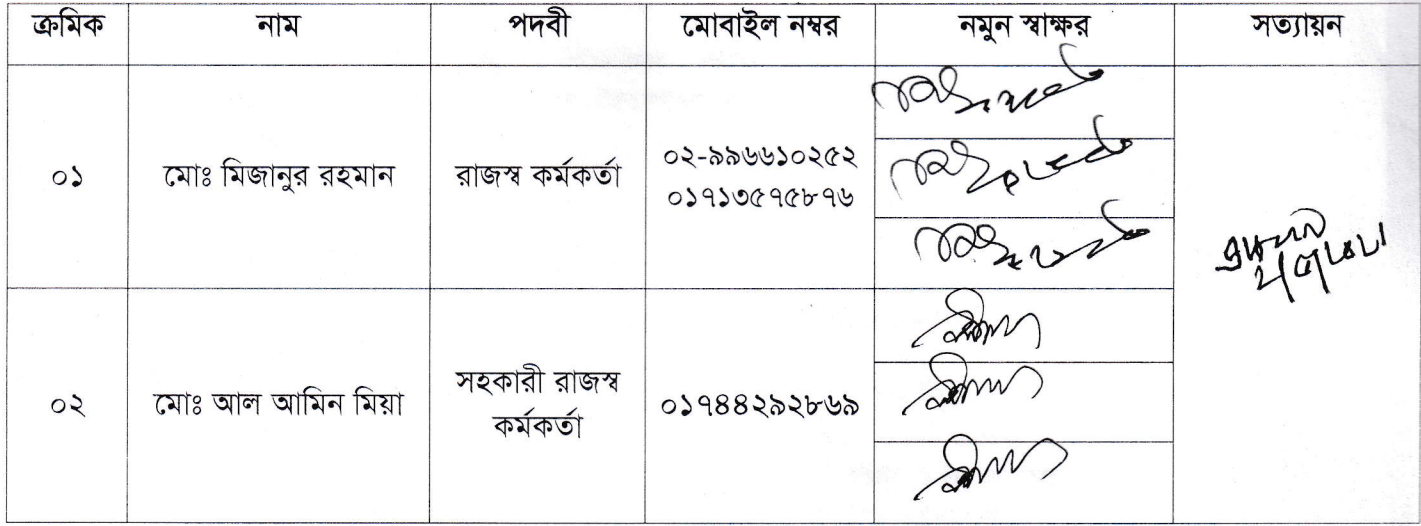 ক্রমিক নাম পদবী মোবাইল নম্বর নমুন স্বাক্ষর সত্যায়ন
০১ মোঃ মিজানুর রহমান রাজস্ব কর্মকর্তা ০২-৯৯৬৬১০২৫২
০১৭১৩৫৭৫৮৭৬
০২ মোঃ আল আমিন মিয়া সহকারী রাজস্ব
কর্মকর্তা ০১৭৪৪২৯২৮৬৯